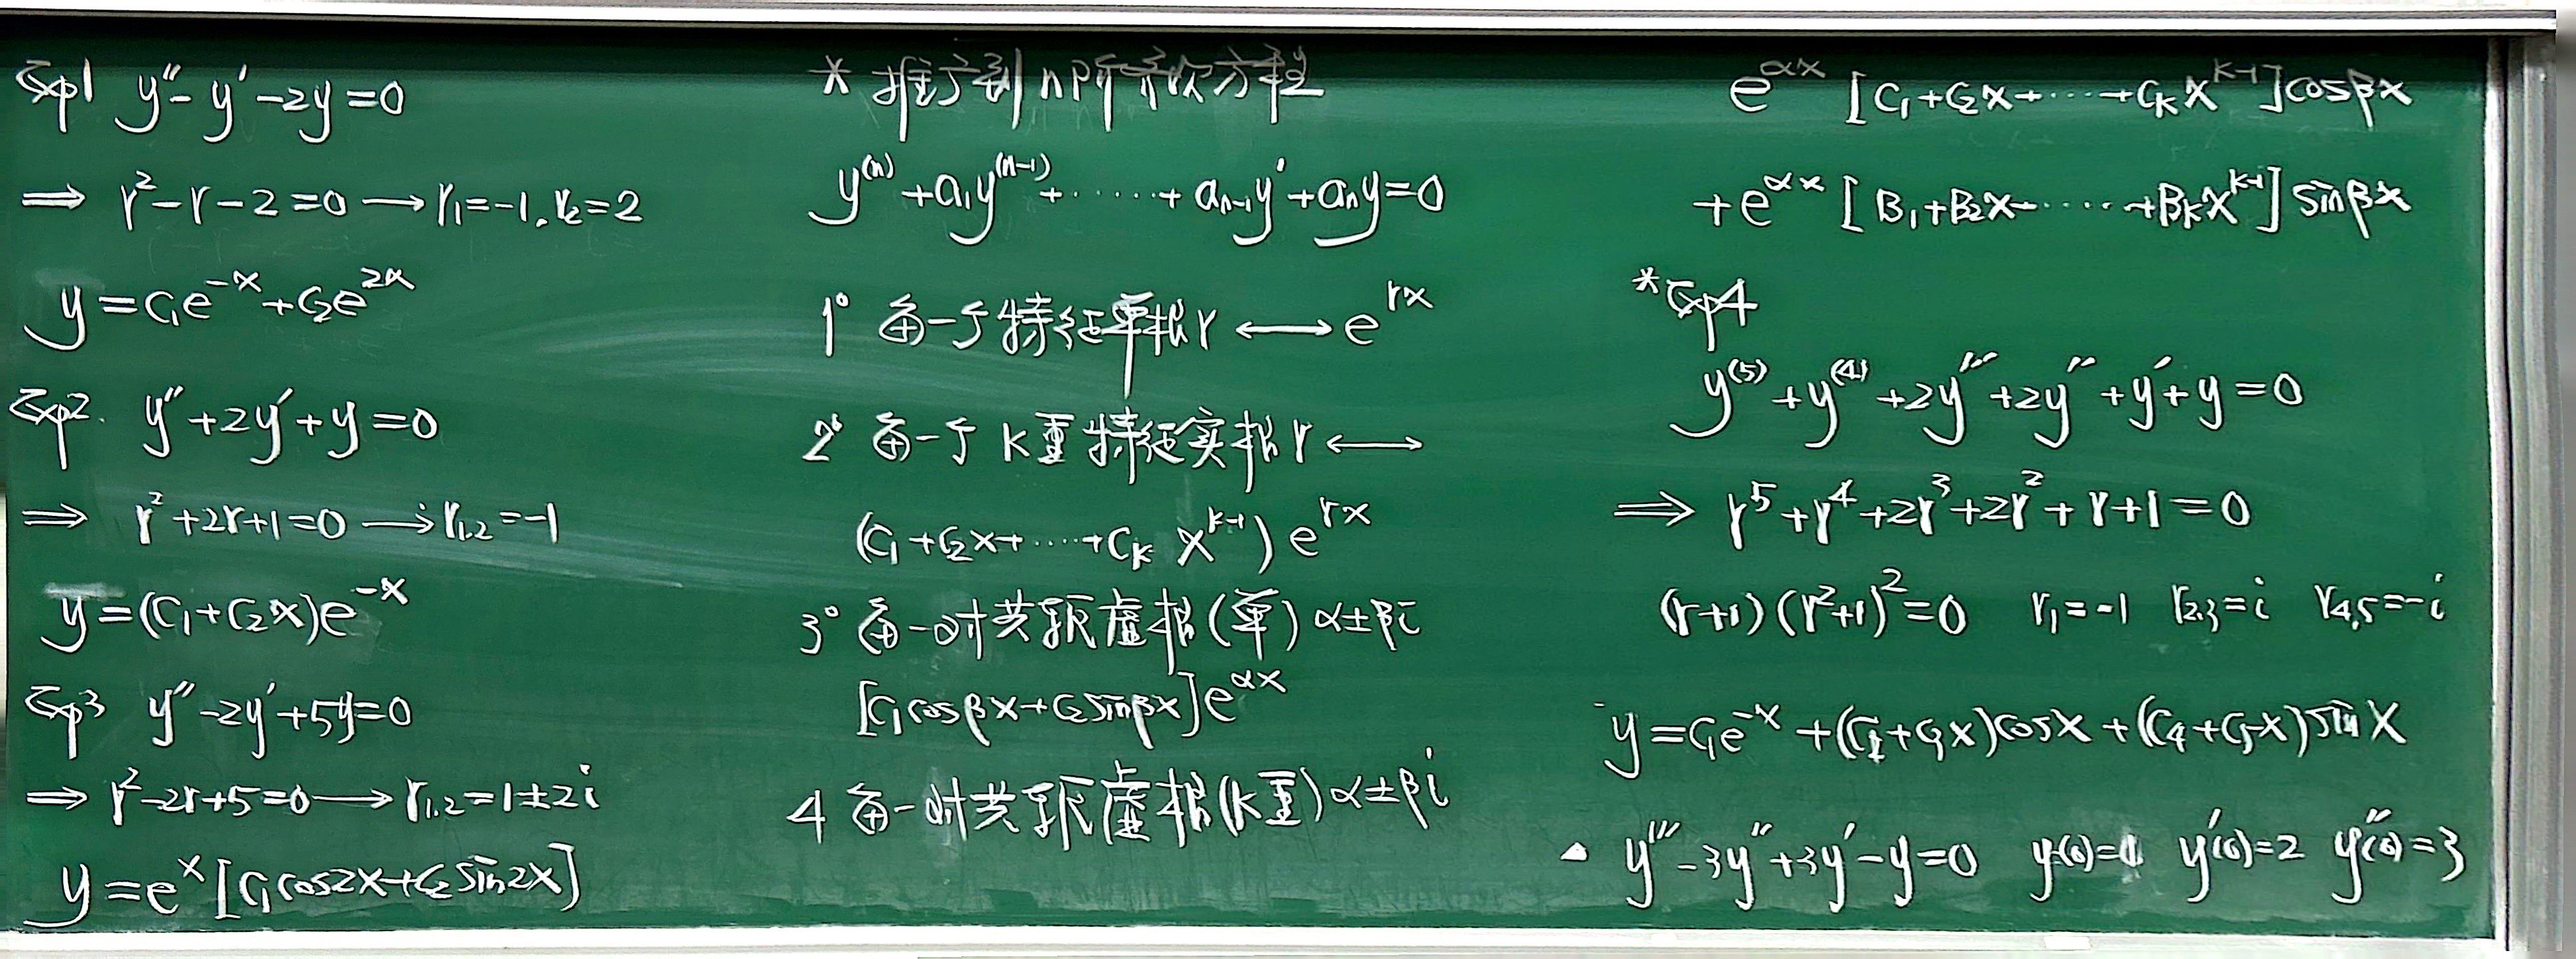 Exp1 y″-y′-2y=0
⇒ r²-r-2=0 → r₁=-1, r₂=2
y=C₁e⁻ˣ+C₂e²ˣ
Exp2. y″+2y′+y=0
⇒ r²+2r+1=0 → r₁,₂=-1
y=(C₁+C₂x)e⁻ˣ
Exp3 y″-2y′+5y=0
⇒ r²-2r+5=0 → r₁,₂=1±2i
y=eˣ[C₁cos2x+C₂sin2x]
* 推广到n阶齐次方程
y⁽ⁿ⁾+a₁y⁽ⁿ⁻¹⁾+······+aₙ₋₁y′+aₙy=0
1° 每一个特征单根r ⟷ e^{rx}
2° 每一个K重特征实根r ⟷
(C₁+C₂x+····+C_k x^{k-1}) e^{rx}
3° 每一对共轭虚根(单) α±βi
[C₁cosβx+C₂sinβx]e^{αx}
4 每一对共轭虚根(K重) α±βi
e^{αx} [C₁+C₂x+····+C_k x^{k-1}]cosβx
+e^{αx} [B₁+B₂x+·····+B_k x^{k-1}]sinβx
*Exp4
y⁽⁵⁾+y⁽⁴⁾+2y‴+2y″+y′+y=0
⇒ r⁵+r⁴+2r³+2r²+r+1=0
(r+1)(r²+1)²=0 r₁=-1 r₂,₃=i r₄,₅=-i
y=C₁e⁻ˣ+(C₂+C₃x)cosx+(C₄+C₅x)sinx
y‴-3y″+3y′-y=0 y(0)=1 y′(0)=2 y″(0)=3